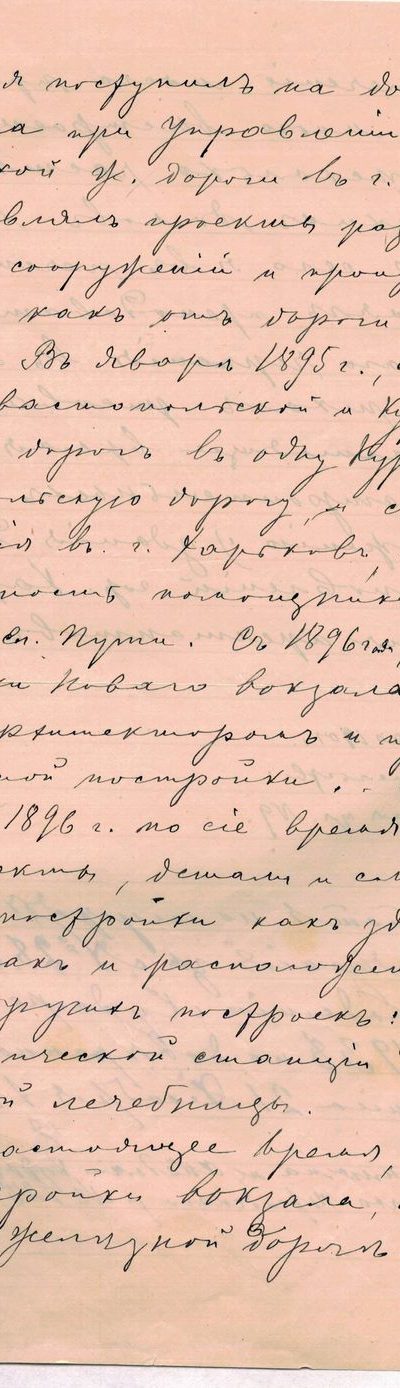 я поступилъ на до
а при Управленіи
кой ж. дороги въ г.
влялъ проекты раз
сооруженій и прои
какъ отъ дороги
Въ Январѣ 1895 г.,
вастопольской и Ку
дорогъ въ одну Кур
ольскую дорогу, и с
ія въ г. Харьковѣ,
ность помощника
сл. Пути. Съ 1896 года
ки Новаго вокзала
рхитекторомъ и п
ной постройки.
1896 г. по сіе время
екты, детали и см
постройки какъ зд
акъ и расположен
ругихъ построекъ:
ической станціи
й лечебницы.
астоящее время,
ройки вокзала,
желѣзной дорогѣ